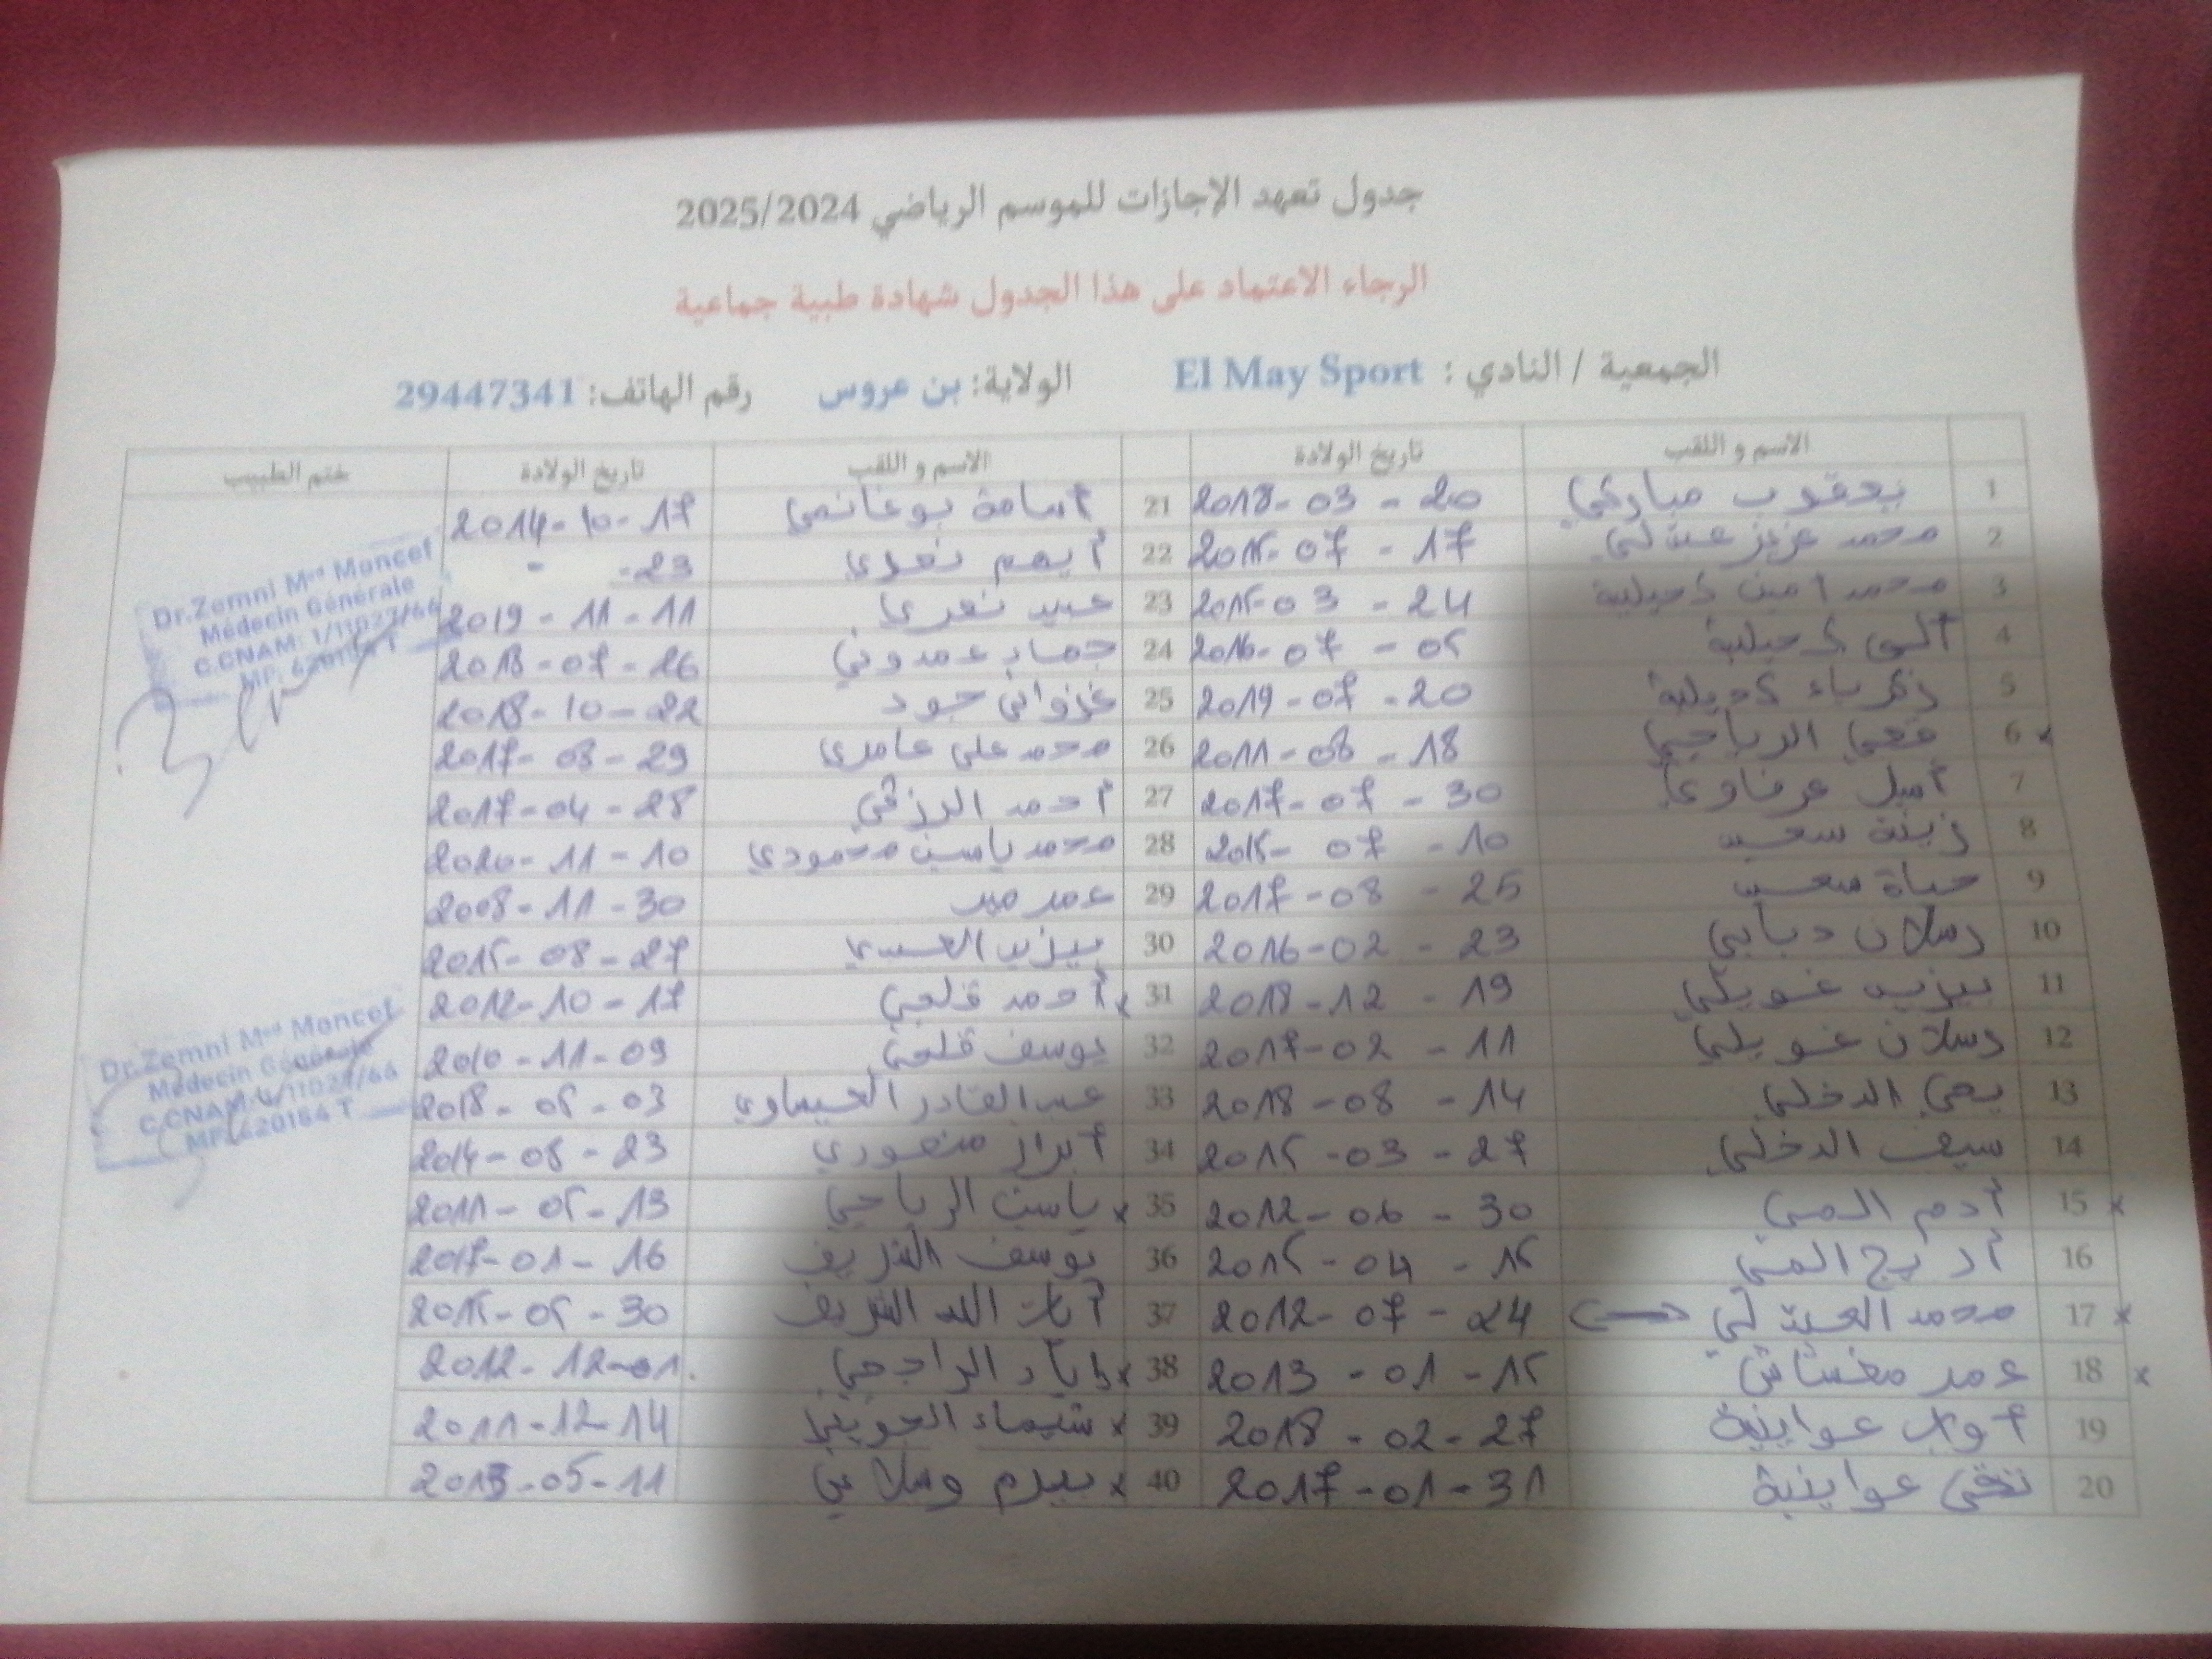 جدول تعهد الإجازات للموسم الرياضي 2025/2024
الرجاء الاعتماد على هذا الجدول شهادة طبية جماعية
الجمعية / النادي : El May Sport الولاية: بن عروس رقم الهاتف: 29447341
الاسم و اللقب تاريخ الولادة الاسم و اللقب تاريخ الولادة ختم الطبيب
1 يعقوب مباركي 2018-03-20 21 أسامة بوغانمي 2014-10-17
2 محمد عزيز 2015-07-17 22 أيهم نصري -23
3 محمد أمين 2015-03-24 23 عبيد نصري 2019-11-11
4 2016-07-05 24 جهاد عمدوني 2018-07-26
5 زكرياء 2019-07-20 25 غزواني جود 2018-10-22
6 x الرياحي 2011-08-18 26 محمد علي عامري 2017-08-29
7 أميل عرفاوي 2017-07-30 27 أحمد الرزقي 2017-04-28
8 زينة سعيد 2015-07-10 28 محمد ياسين محمودي 2020-11-10
9 حياة سعيد 2017-08-25 29 عمر 2008-11-30
10 رسلان دبابي 2016-02-23 30 بيزيد 2015-08-27
11 بيزيد غويلي 2018-12-19 31 x أحمد قلعي 2012-10-17
12 رسلان غويلي 2017-02-11 32 يوسف قلعي 2010-11-09
13 يحي الدخلي 2018-08-14 33 عبد القادر العيساوي 2018-05-03
14 سيف الدخلي 2015-03-27 34 أبرار منصوري 2014-08-23
15 x أدم المي 2012-06-30 35 x ياسين الرياحي 2011-05-13
16 أريج المي 2015-04-15 36 يوسف الشريف 2017-01-16
17 x محمد 2012-07-24 37 آيات الله الشريف 2015-05-30
18 x عمر 2013-01-15 38 x إياد الراجحي 2012-12-01
19 أواب عواينية 2018-02-27 39 x شيماء 2011-12-14
20 تقى عواينية 2017-01-31 40 x بيرم وسلاتي 2013-05-11
Dr.Zemni Med Moncef
Médecin Générale
C.CNAM: 1/11023/66
MF: 420184 T
Dr.Zemni Med Moncef
Médecin Générale
C.CNAM: 1/11023/66
MF: 420184 T